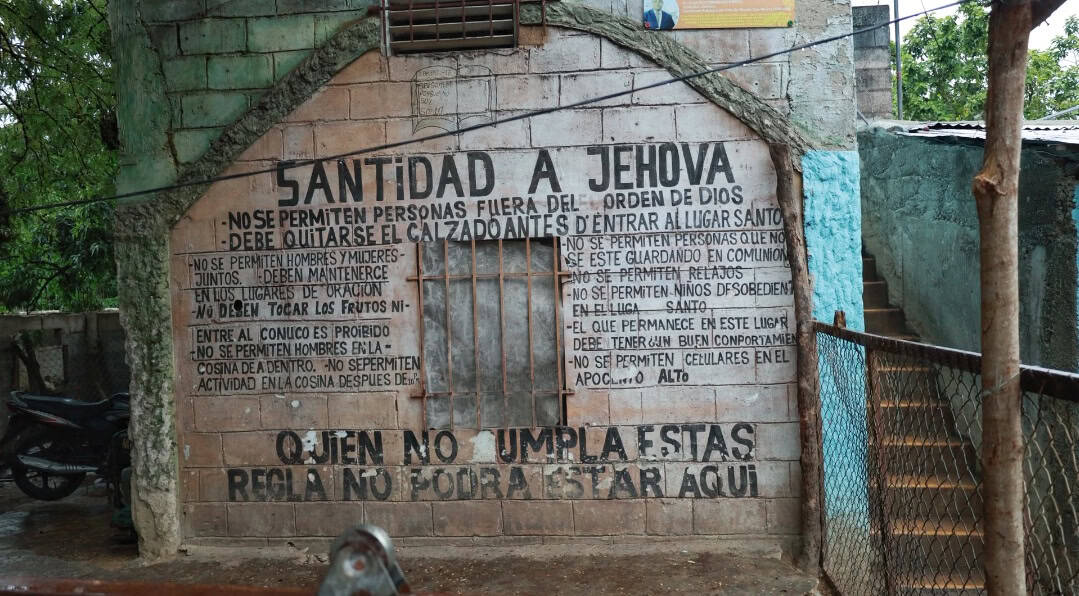 SANTIDAD A JEHOVA
-NO SE PERMITEN PERSONAS FUERA DEL ORDEN DE DIOS
-DEBE QUITARSE EL CALZADO ANTES D'ENTRAR AL LUGAR SANTO
-NO SE PERMITEN HOMBRES Y MUJERES-
JUNTOS. -DEBEN MANTENERCE
EN LOS LUGARES DE ORACION
-NO DEBEN TOCAR LOS FRUTOS NI-
ENTRE AL CONUCO ES PROIBIDO
-NO SE PERMITEN HOMBRES EN LA-
COSINA DE ADENTRO. -NO SEPERMITEN
ACTIVIDAD EN LA COSINA DESPUES DE
NO SE PERMITEN PERSONAS QUE NO
SE ESTE GUARDANDO EN COMUNION
-NO SE PERMITEN RELAJOS
-NO SE PERMITEN NIÑOS DESOBEDIENT
EN EL LUGA SANTO
-EL QUE PERMANECE EN ESTE LUGAR
DEBE TENER UN BUEN COMPORTAMIEN
-NO SE PERMITEN CELULARES EN EL
APOCENTO ALTO
QUIEN NO UMPLA ESTAS
REGLA NO PODRA ESTAR AQUI